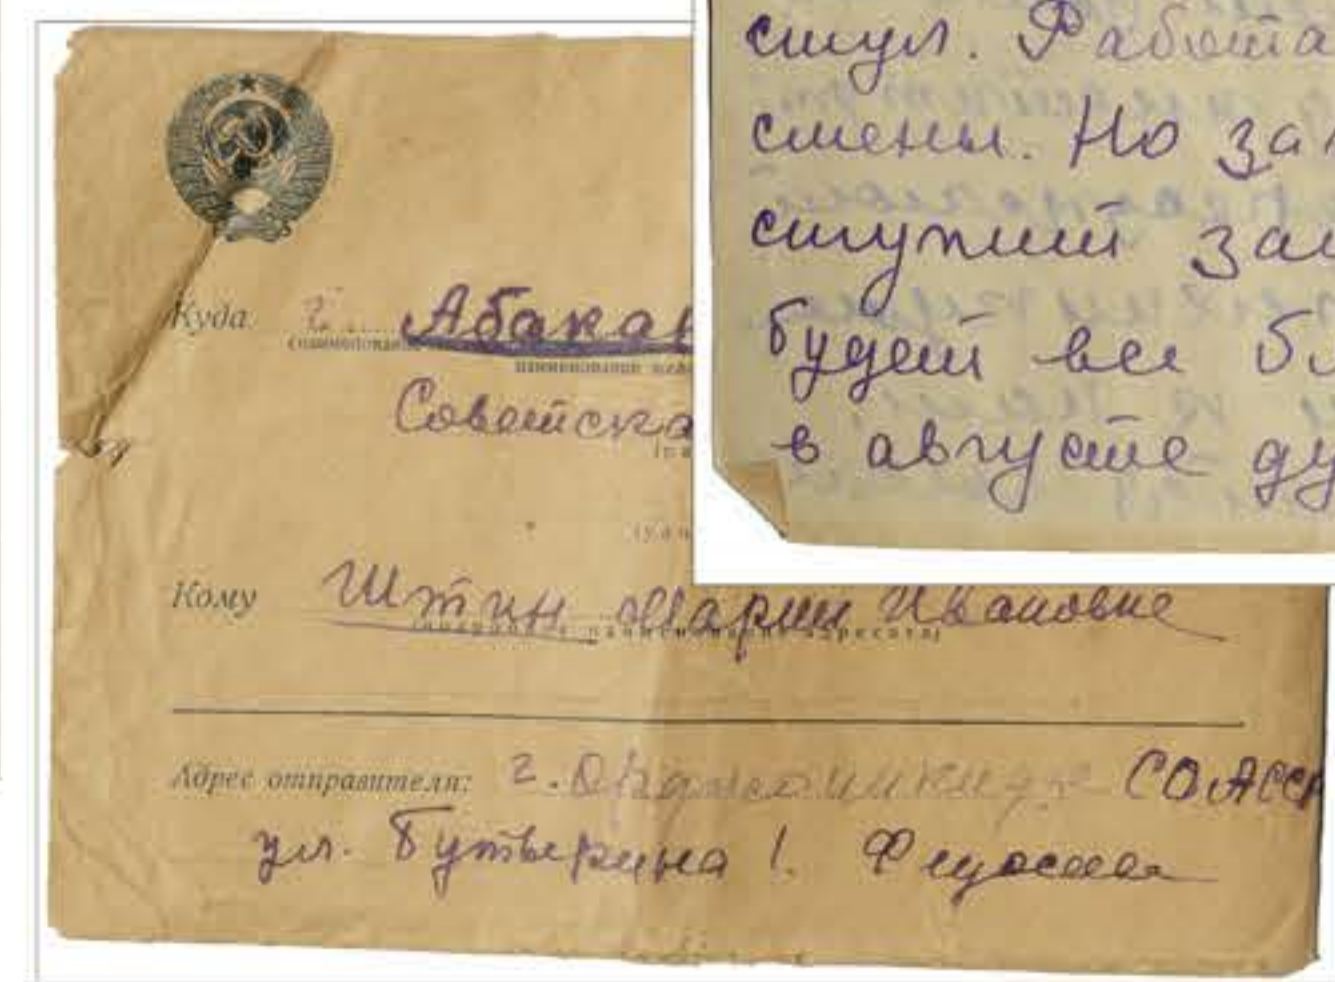 Куда г. Абакан
Советска
Кому Штин Марии Ивановне
Адрес отправителя: г. Орджоникидзе СОАССР
ул. Бутырина 1.
стул. Работа
смены. Но за
ступит за
будет все
в августе ду